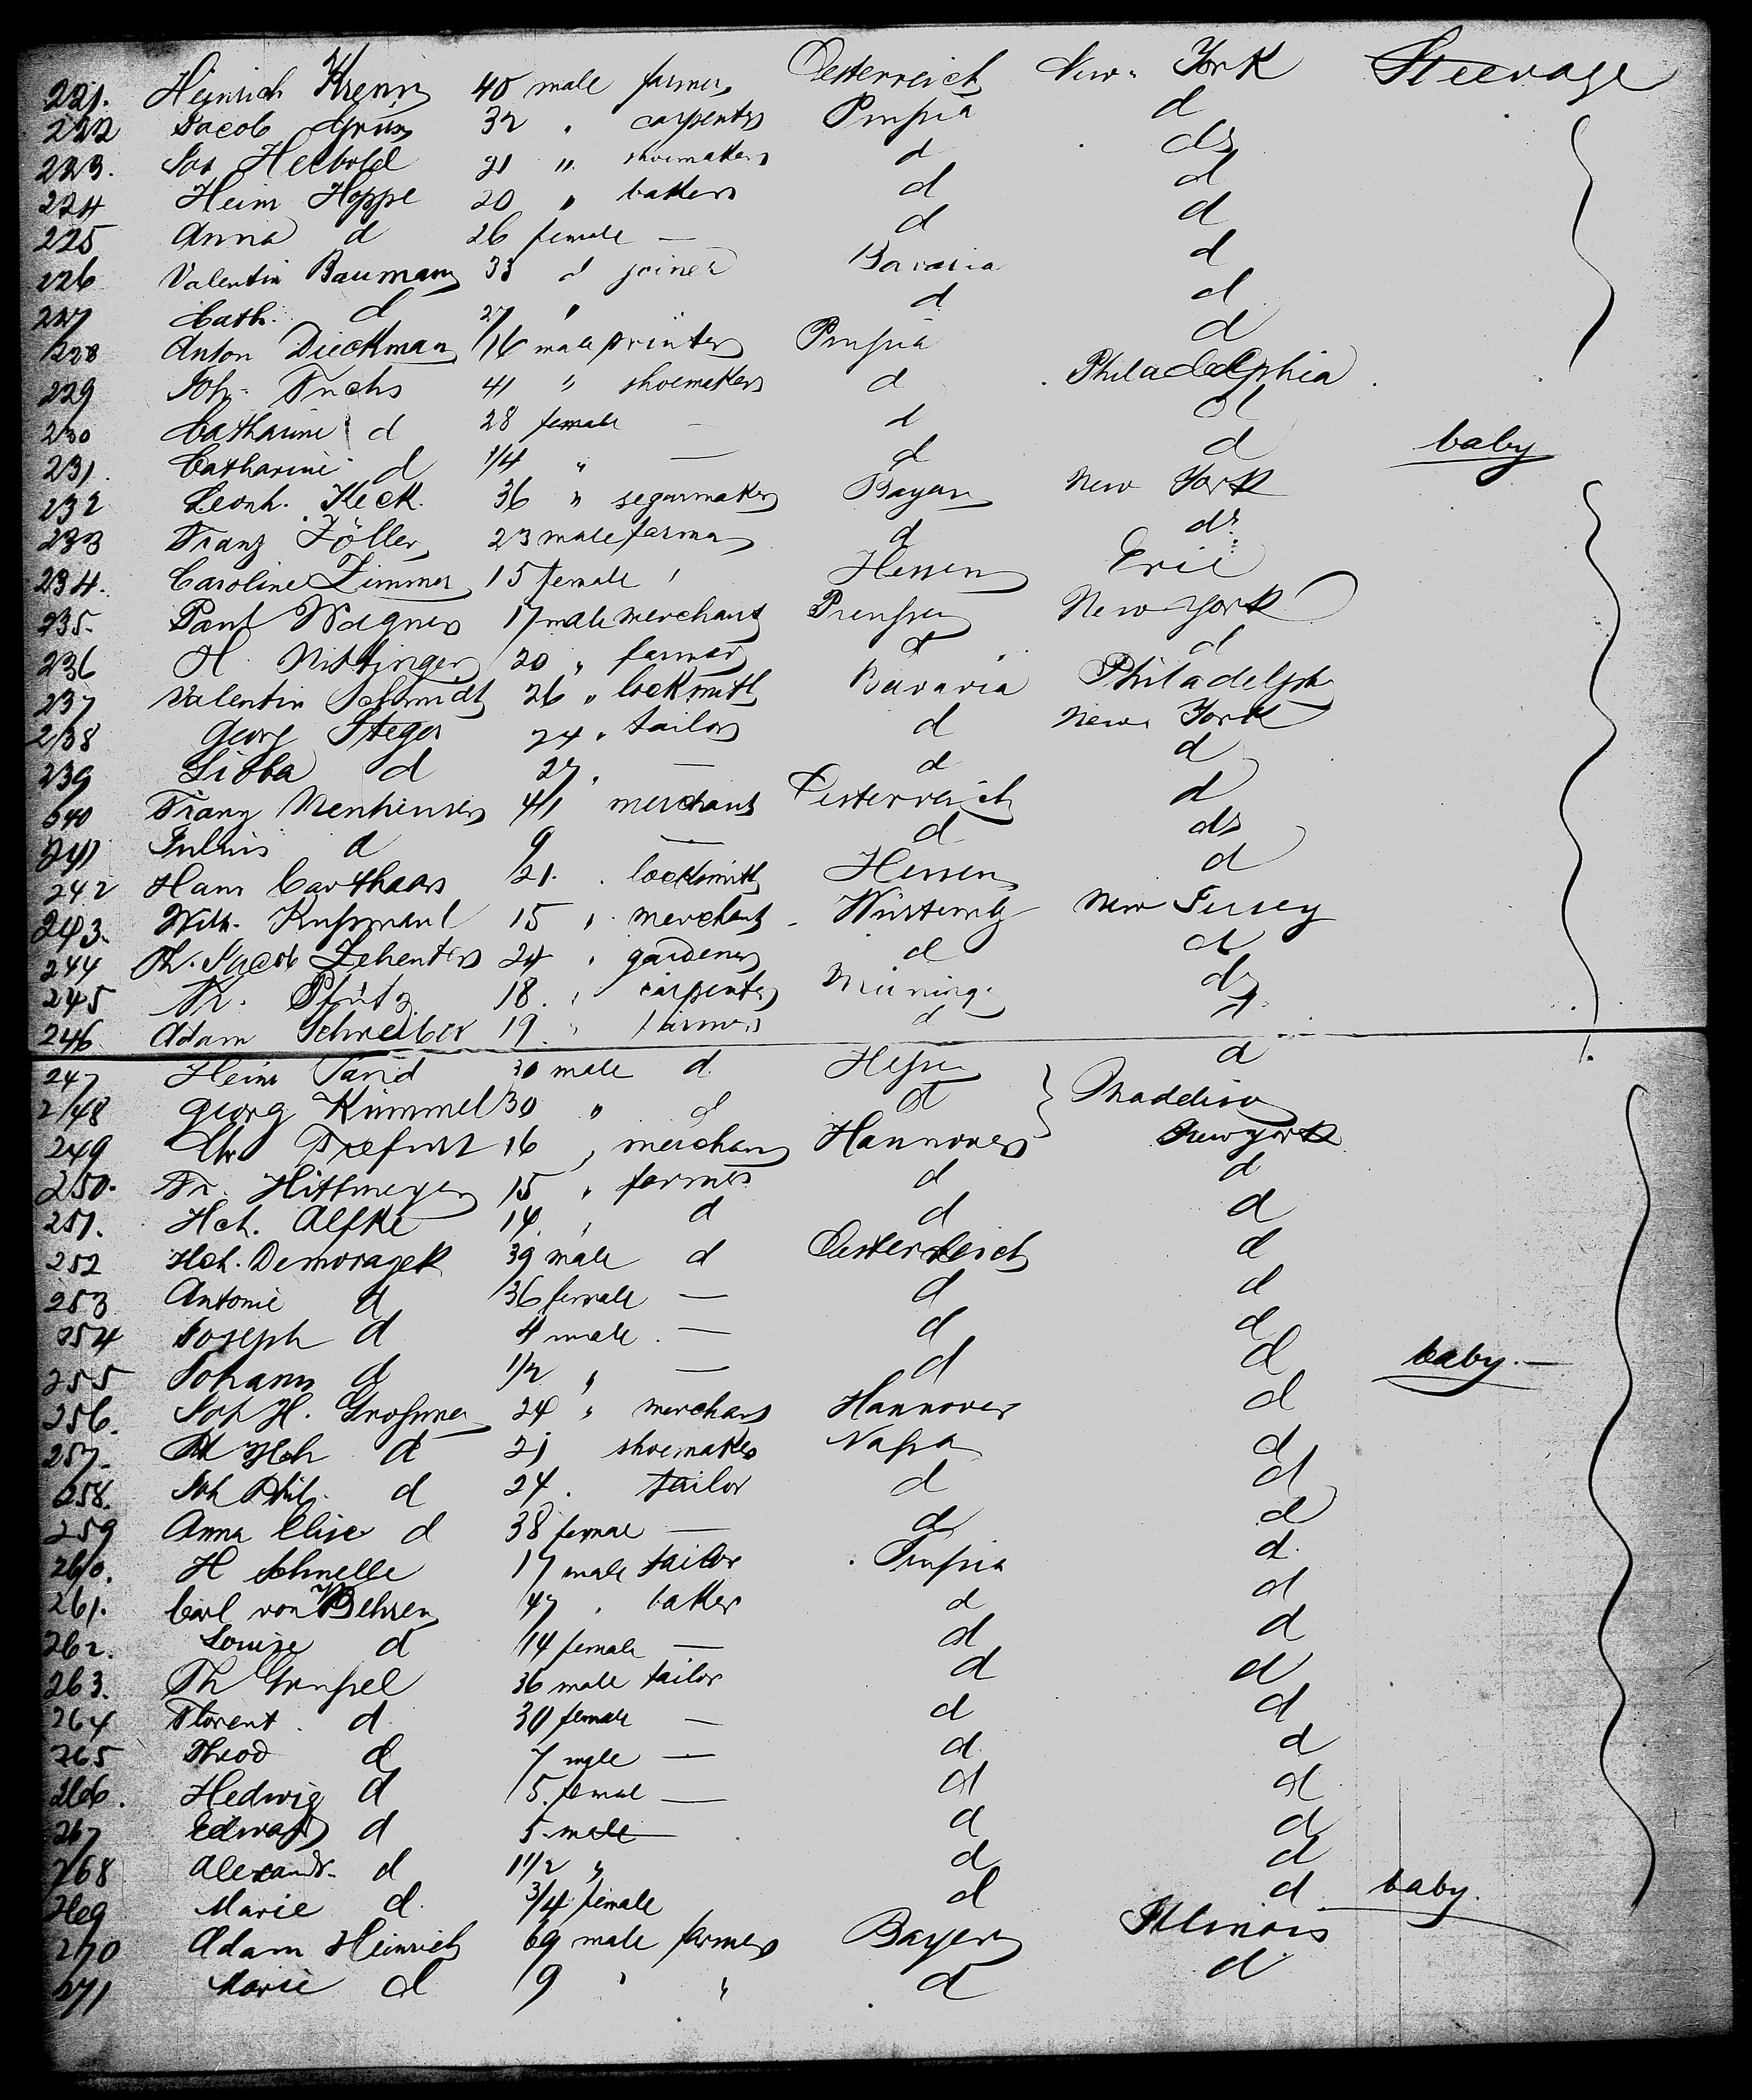 221. Heinrich Krenn 40 male farmer Oesterreich New York Steerage
222 Jacob Grün 32 " carpenter Prußia d
223. Jos Heebold 21 " shoemaker d do
224 Heinr Hoppe 20 " baker d d
225 Anna d 26 female — d d
226 Valentin Baumann 33 d joiner Bavaria d
227 Cath. d 27 " d d
228 Anton Dieckmann 16 male printer Prußia d
229 Joh. Fuchs 41 " shoemaker d Philadelphia
230 Catharine d 28 female — d d
231. Catharine d 1/4 " — d d baby
232 Leonh. Keck. 36 " segarmaker Bayern New York
233 Franz Zöller 23 male farmer d do
234. Caroline Zimmer 15 female " Hessen Erie
235. Paul Wagner 17 male merchant Preußen New York
236 H. Nittinger 20 " farmer d d
237 Valentin Schmidt 26 " locksmith Bavaria Philadelph
238 Georg Steger 24 " tailor d New York
239 d 27 " — d d
240 Franz 41 merchant Oesterreich d
241 Julius d 9 — d do
242 Hans Carthaus 21. " locksmith Hessen d
243. Wilh. Kußmaul 15 " merchant Würtembg New Jersey
244 Jacob Zehenter 24 " gardener d d
245 Fr. Pfütz 18. " carpenter d
246 Adam Schreiber 19. " farmer d d
247 Heinr 30 male d. Heßen d
248 Georg Kümmel 30 " d d Maddison
249 Chr Trefurt 16 " merchant Hannover New york
250. Fr. Hittmeyer 15 " farmer d d
251. Hch. Alfke 14. " d d d
252 Hch. Demoragek 39 male d Oesterreich d
253 Antonie d 36 female — d d
254 Joseph d 4 male — d d
255 Johann d 1/2 " — d d baby. —
256. Joh H. 24 " merchant Hannover d
257. Hch d 21 shoemaker Naßau d
258. Joh Phil. d 24. tailor d d
259 Anna Elise d 38 female — d d
260. H Schnelle 17 male tailor Prußia d.
261. Carl von Behren 47 " baker d d
262. Louise d 14 female — d d
263. Th Grußel 36 male tailor d d
264 Florent. d. 30 female — d d
265 Theod d 7 male — d. d
266. Hedwig d 5. femal — d d
267 Edward d 5 male — d d
268 Alexandr. d 1 1/2 " d d
269 Marie d. 3/4 female d d baby.
270 Adam Heinrich 69 male farmer Bayern Illinois
271 Marie d 19 " " d d